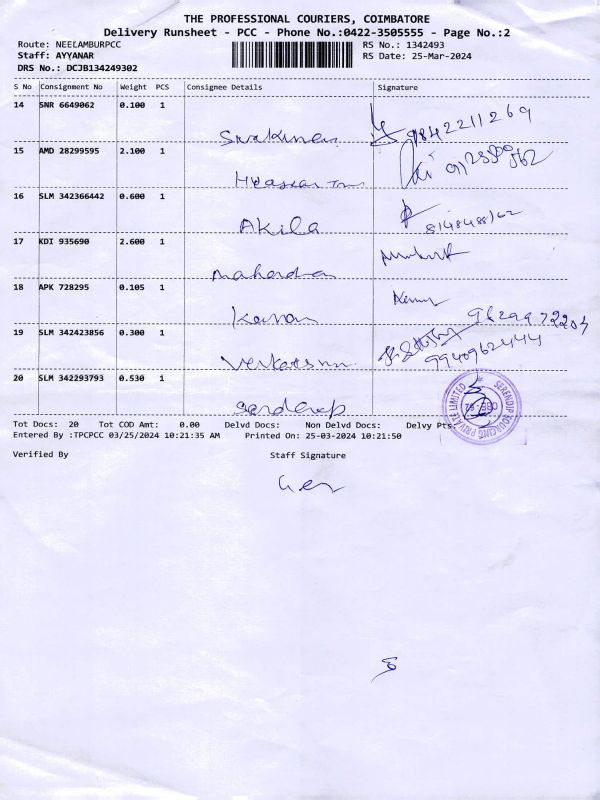 THE PROFESSIONAL COURIERS, COIMBATORE
Delivery Runsheet - PCC - Phone No.:0422-3505555 - Page No.:2
Route: NEELAMBURPCC RS No.: 1342493
Staff: AYYANAR RS Date: 25-Mar-2024
DRS No.: DCJB134249302
S No Consignment No Weight PCS Consignee Details Signature
14 SNR 6649062 0.100 1 9842211269
15 AMD 28299595 2.100 1
16 SLM 342366442 0.600 1 Akila
17 KDI 935690 2.600 1
18 APK 728295 0.105 1 Kannan
19 SLM 342423856 0.300 1 9940962444
20 SLM 342293793 0.530 1
Tot Docs: 20 Tot COD Amt: 0.00 Delvd Docs: Non Delvd Docs: Delvy Pts:
Entered By :TPCPCC 03/25/2024 10:21:35 AM Printed On: 25-03-2024 10:21:50
Verified By Staff Signature
SERENDIP SOURCING PRIVATE LIMITED